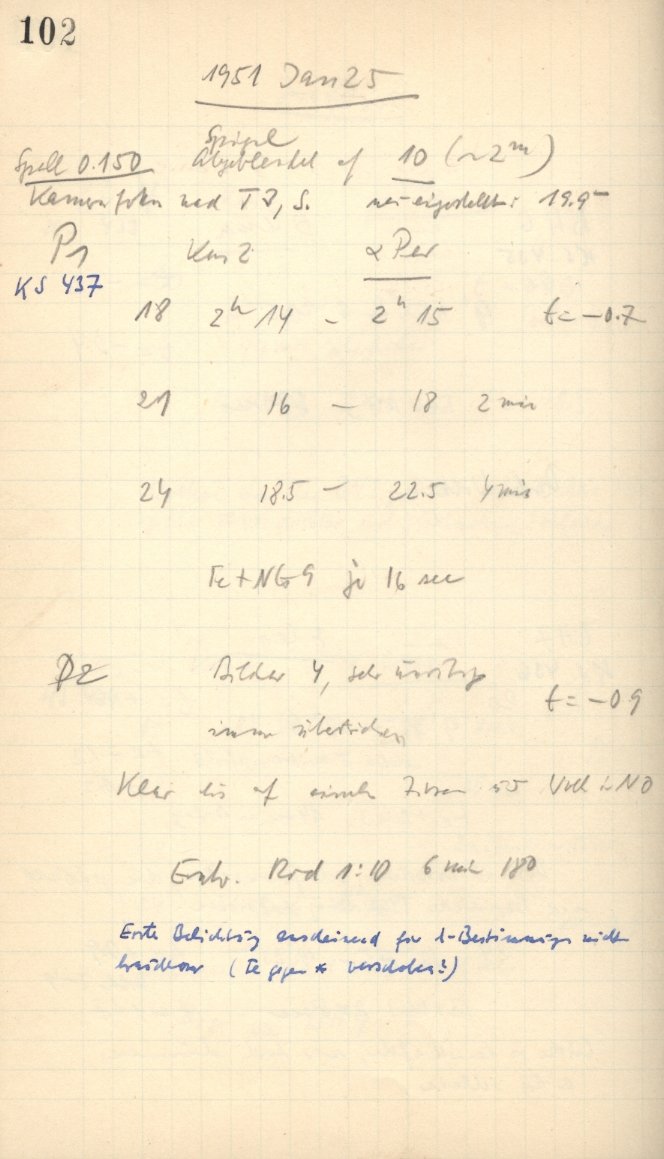 102
1951 Jan 25
Spiegel
Spalt 0.150 Abgeblendet auf 10 (~2m)
Kamerafokus nach T J, S. neu eingestellt: 19.5
P1 Kas 2 α Per
KS 437
18 2h 14 - 2h 15 t = -0.7
21 16 - 18 2 min
24 18.5 - 22.5 4 min
Fe + NG 9 je 16 sec
P2 Bilder 4, sehr unruhig
t = -0.9
Klar bis auf einzelne Zirren
Entw. Rod 1:10 6 min 180
Erste Belichtung anscheinend für λ-Bestimmungen nicht
brauchbar (Fe gegen * verschoben?)